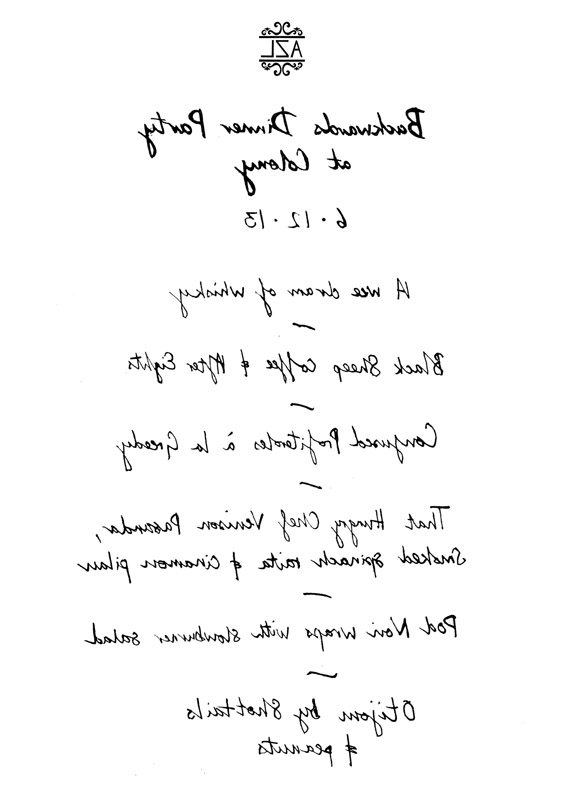 AZL
Backwards Dinner Party
at Colony
6 · 12 · 13
A wee dram of whisky
Black Sheep Coffee & After Eights
Confused Profiteroles à la Greedy
That Hungry Chef Venison Pasanda,
Smoked Spinach raita & cinamon pilau
Pod Nori wraps with slowburner salad
Otijom by Shottails
& peanuts